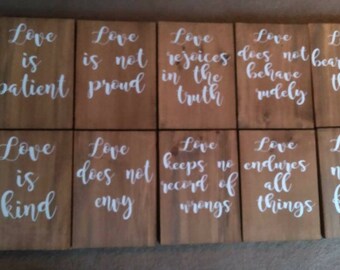 Love
is
patient
Love
is not
proud
Love
rejoices
in the
truth
Love
does not
behave
rudely
Love
is
kind
Love
does not
envy
Love
keeps no
record of
wrongs
Love
endures
all
things